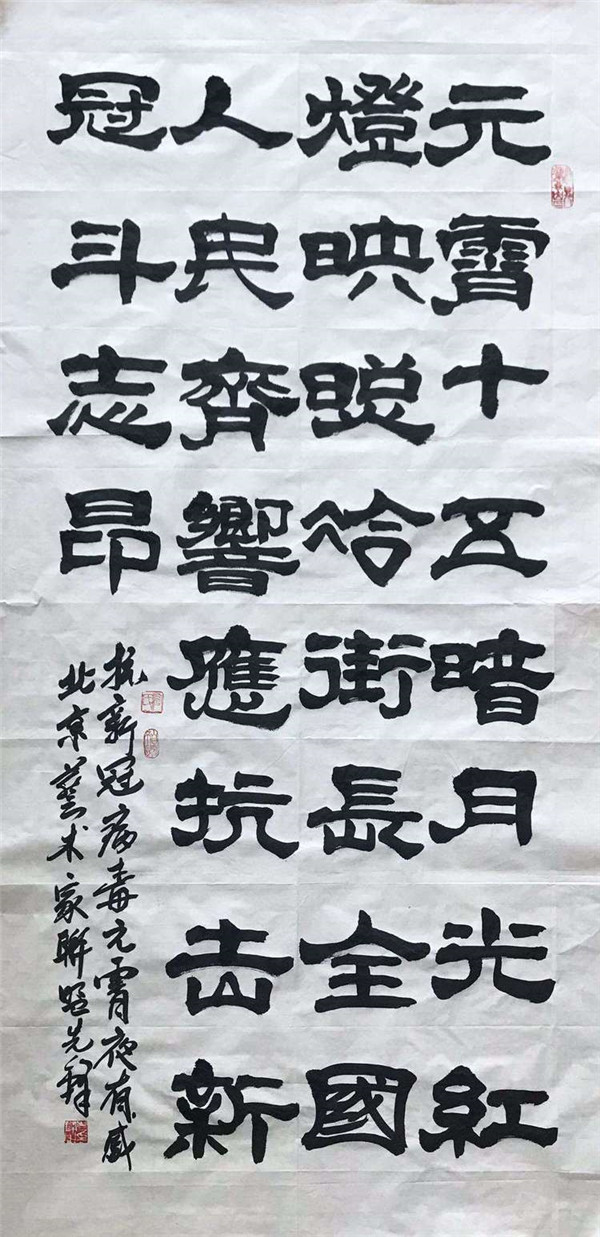 元霄十五暗月光紅
燈映晚冷街長全國
人民齊響應抗击新
冠斗志昂
抗新冠病毒元霄夜有感
北京藝术家聯盟先